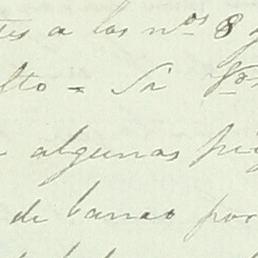 tes a los nos 8 y
lto = Sr
algunas pie
de barco por